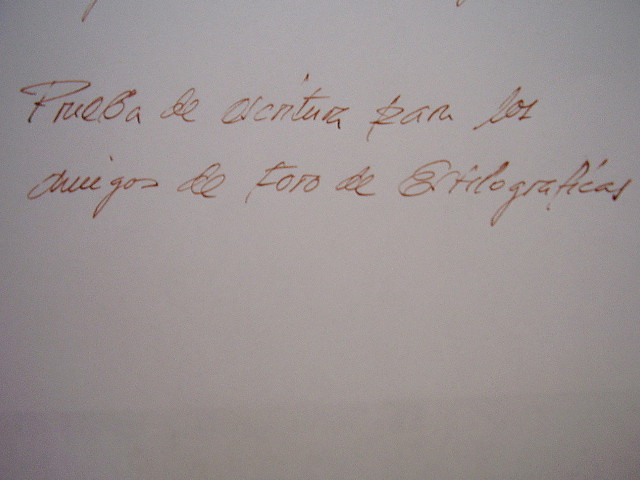 Prueba de escritura para los
amigos de Foro de Estilograficas